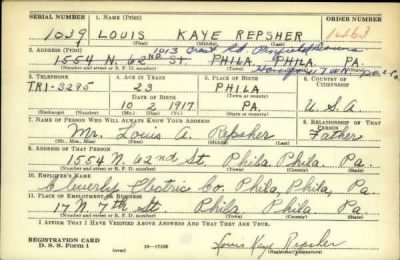 SERIAL NUMBER 1. NAME (Print) ORDER NUMBER
1039 LOUIS KAYE REPSHER
(First) (Middle) (Last)
2. ADDRESS (Print)
1554 N. 62ND ST. PHILA. PHILA. PA.
(Number and street or R. F. D. number) (Town) (County) (State)
3. TELEPHONE 4. AGE IN YEARS 5. PLACE OF BIRTH 6. COUNTRY OF CITIZENSHIP
TRI-3295 23 PHILA
DATE OF BIRTH (Town or county)
10 2 1917 PA. U.S.A
(Exchange) (Number) (Mo.) (Day) (Yr.) (State or country)
7. NAME OF PERSON WHO WILL ALWAYS KNOW YOUR ADDRESS 8. RELATIONSHIP OF THAT PERSON
Mr. Louis A. Repsher Father
(Mr., Mrs., Miss) (First) (Middle) (Last)
9. ADDRESS OF THAT PERSON
1554 N. 62nd St. Phila. Phila. Pa.
(Number and street or R. F. D. number) (Town) (County) (State)
10. EMPLOYER'S NAME
Cleverly Electric Co. Phila, Phila, Pa.
11. PLACE OF EMPLOYMENT OR BUSINESS
17 N. 7th St Phila Phila Pa
(Number and street or R. F. D. number) (Town) (County) (State)
I AFFIRM THAT I HAVE VERIFIED ABOVE ANSWERS AND THAT THEY ARE TRUE.
REGISTRATION CARD
D. S. S. Form 1 (over) Louis Kaye Repsher
(Registrant's signature)